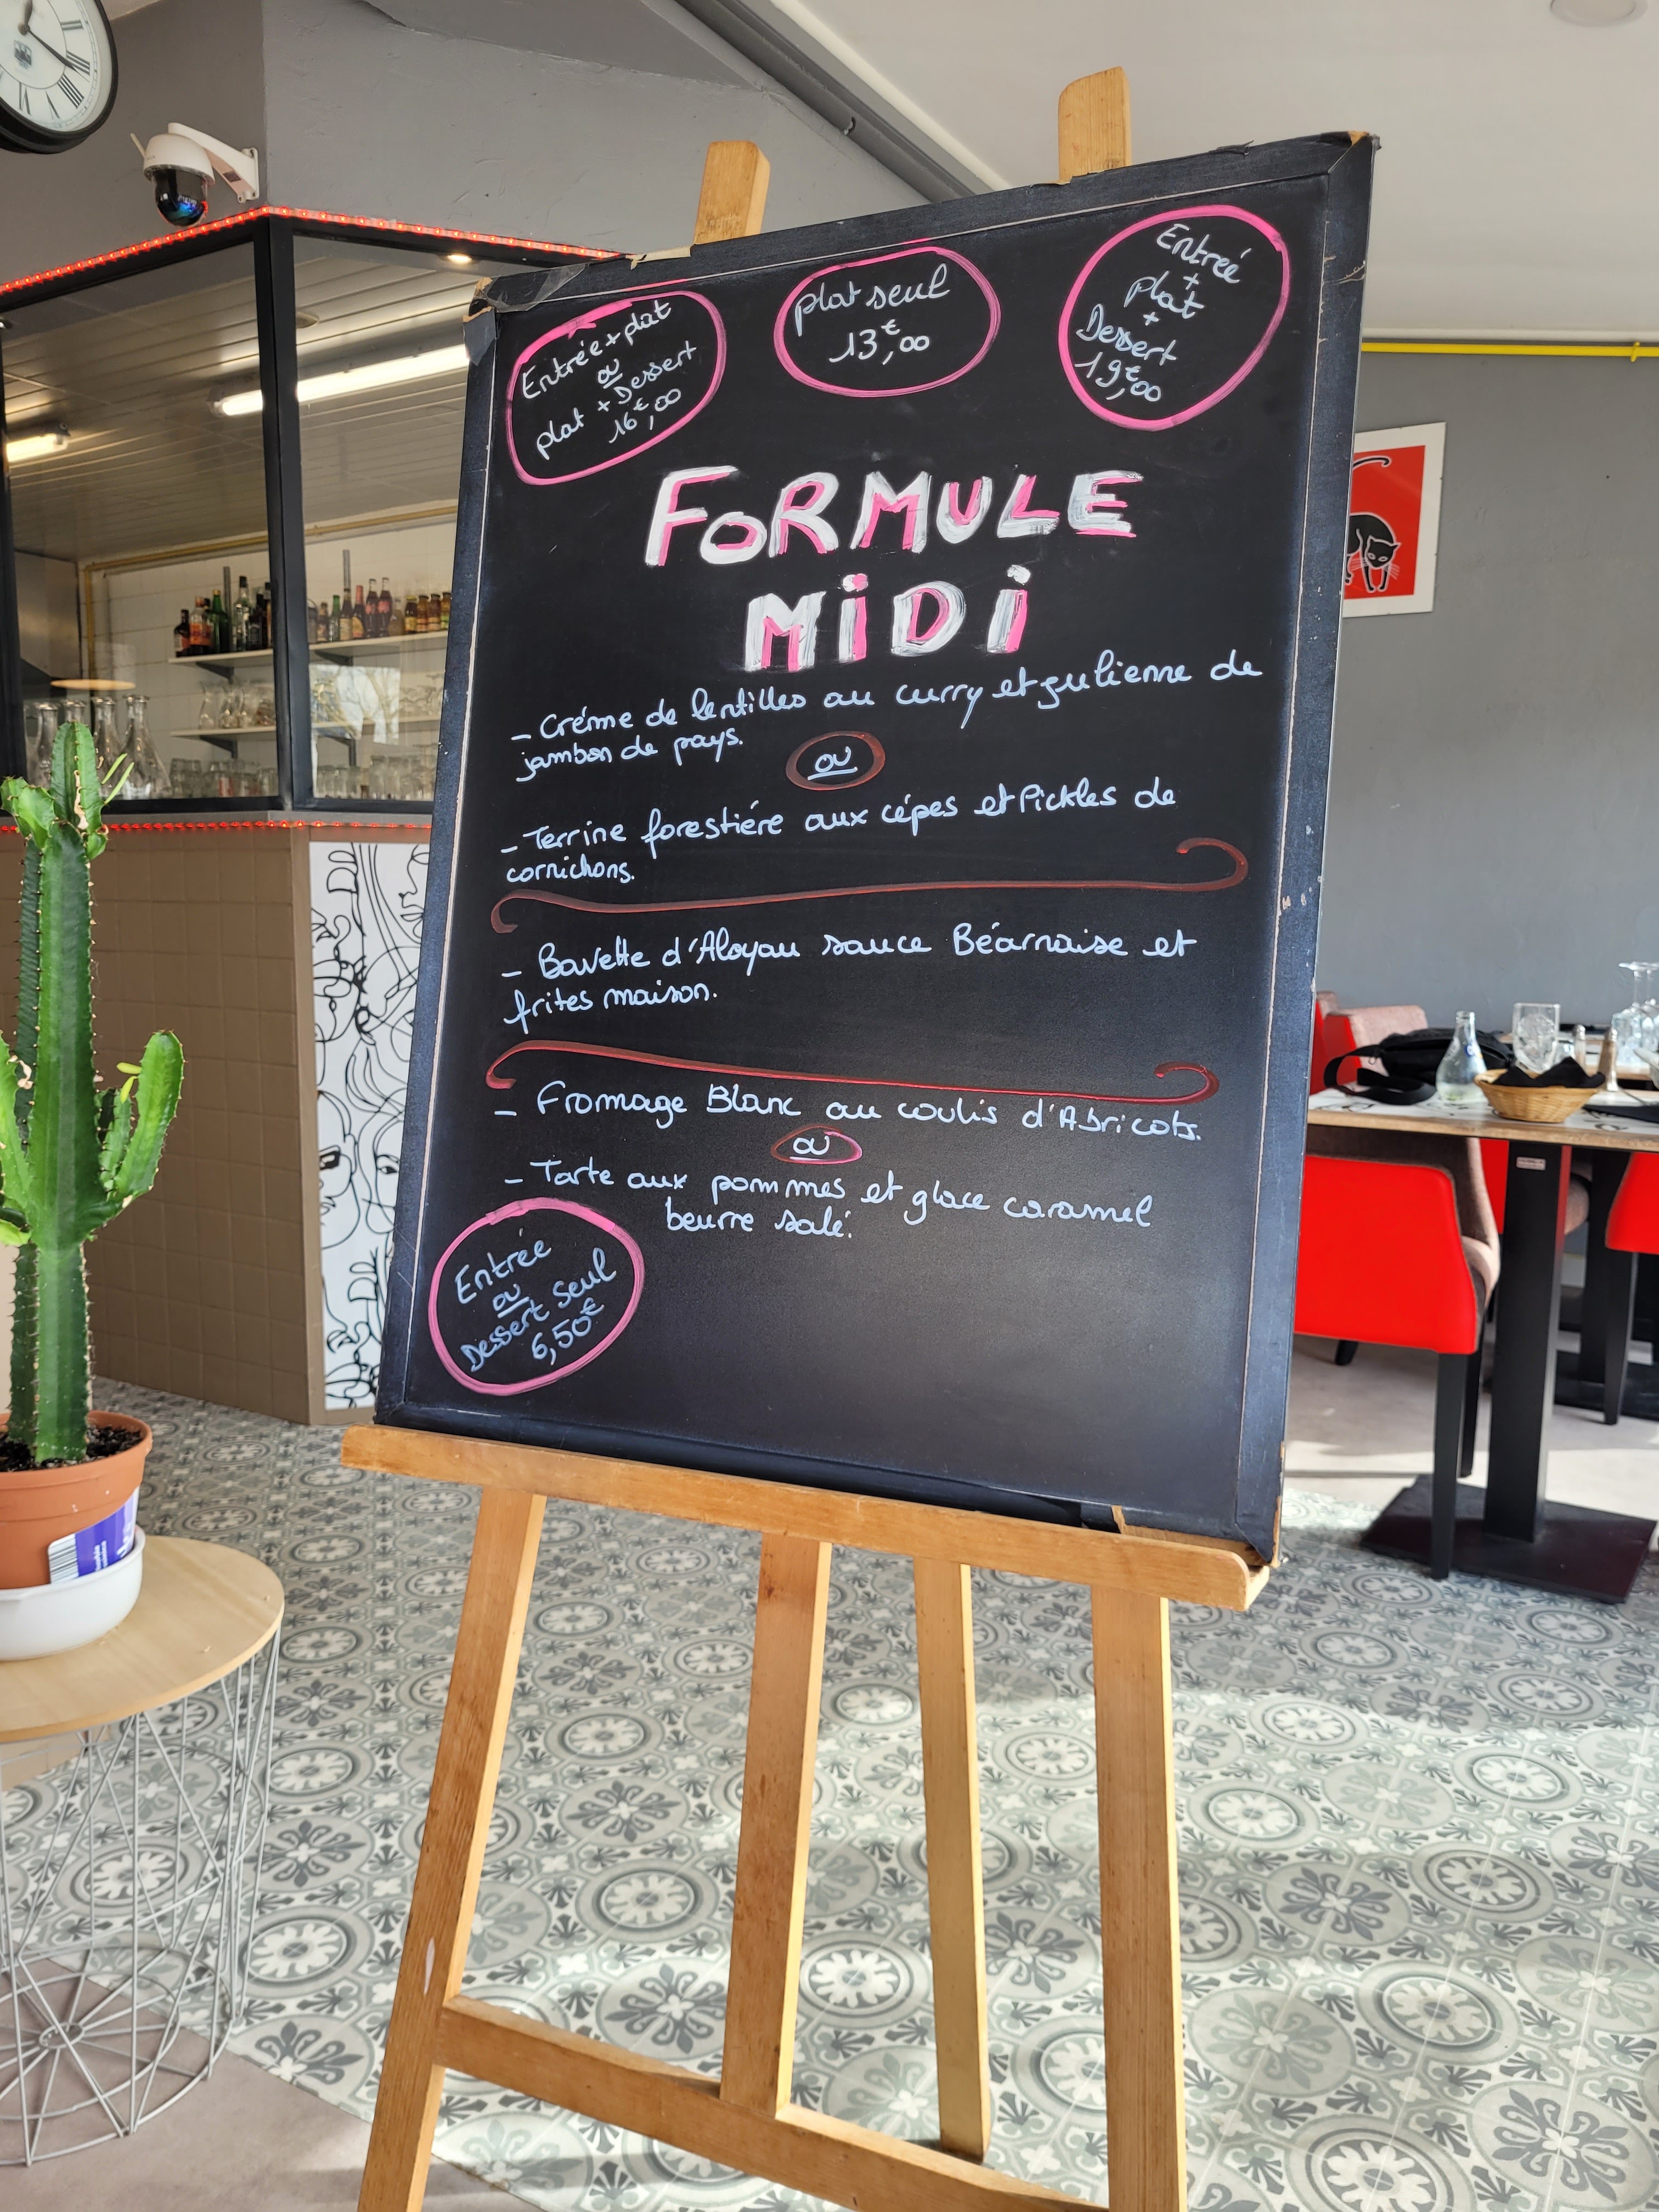 Entrée + plat
ou
plat + Dessert
16€,00
plat seul
13€,00
Entrée
+
plat
+
Dessert
19€,00
FORMULE
MiDi
- Créme de lentilles au curry et julienne de
jambon de pays.
ou
- Terrine forestiére aux cépes et Pickles de
cornichons.
- Bavette d'Aloyau sauce Béarnaise et
frites maison.
- Fromage Blanc au coulis d'Abricots.
ou
- Tarte aux pommes et glace caramel
beurre salé.
Entrée
ou
Dessert Seul
6,50€